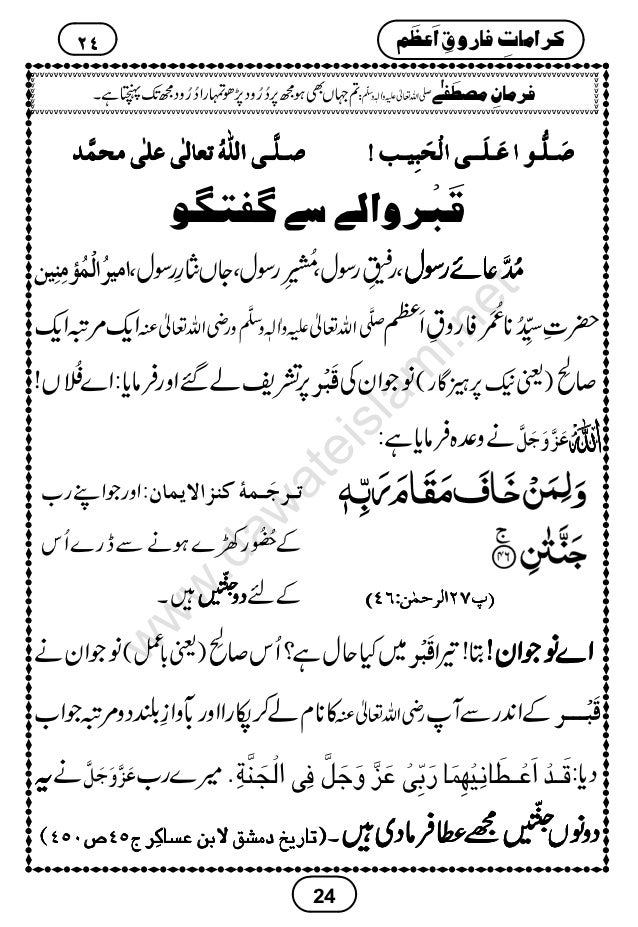 کراماتِ فاروقِ اَعظَم
٢٤
فرمانِ مصطَفٰے صلی اللہ تعالٰی علیہ والہٖ وسلّم: تم جہاں بھی ہو مجھ پر دُرُود پڑھو تمہارا دُرُود مجھ تک پہنچتا ہے۔
صَلُّوا عَلَی الْحَبِیب ! صلَّی اللّٰہُ تعالٰی علٰی محمَّد
قَبْر والے سے گفتگو
مُدَّعائے رسول، رفیقِ رسول، مُشیرِ رسول، جاں نثارِ رسول، امیرُ الْمُؤمِنین
حضرتِ سیِّدُنا عُمر فاروقِ اَعظم صلَّی اللہ تعالٰی علیہ والہٖ وسلَّم ورضی اللہ تعالٰی عنہ ایک مرتبہ ایک
صالح (یعنی نیک پرہیزگار) نوجوان کی قَبْر پر تشریف لے گئے اور فرمایا: اے فُلاں!
اللّٰہُ عَزَّوَجَلَّ نے وعدہ فرمایا ہے:
وَلِمَنْ خَافَ مَقَامَ رَبِّهٖ
جَنَّتٰنِ ۚ﴿۴۶﴾
(پ۲۷الرحمٰن:٤٦)
ترجَمۂ کنز الایمان: اور جو اپنے رب
کے حُضُور کھڑے ہونے سے ڈرے اُس
کے لئے دو جنّتیں ہیں۔
اے نوجوان! بتا! تیرا قَبْر میں کیا حال ہے؟ اُس صالح (یعنی باعمل) نوجوان نے
قَبْر کے اندر سے آپ رضی اللہ تعالٰی عنہ کا نام لے کر پکارا اور بآوازِ بلند دو مرتبہ جواب
دیا: قَدْ اَعْطَانِیْهِمَا رَبِّیْ عَزَّ وَجَلَّ فِی الْجَنَّةِ. میرے رب عَزَّوَجَلَّ نے یہ
دونوں جنّتیں مجھے عطا فرمادی ہیں۔ (تاریخ دمشق لابن عساکِر ج٤٥ص٤٥٠)
24
www.dawateislami.net